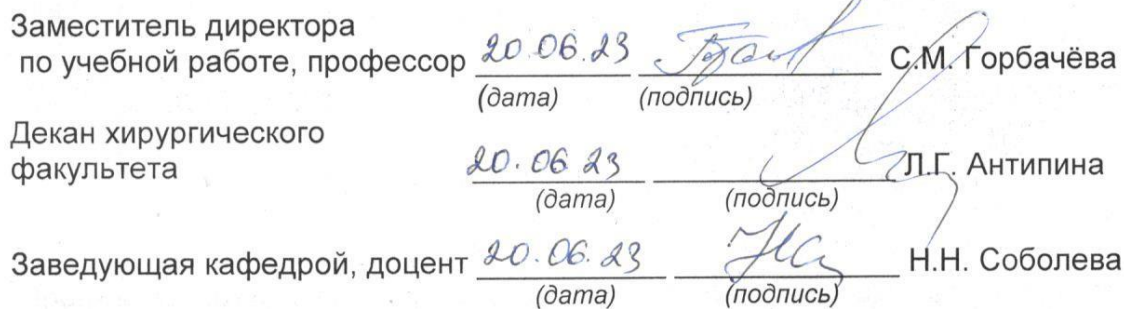 Заместитель директора
по учебной работе, профессор 20.06.23 С.М. Горбачёва
(дата) (подпись)
Декан хирургического
факультета 20.06 23 Л.Г. Антипина
(дата) (подпись)
Заведующая кафедрой, доцент 20.06.23 Н.Н. Соболева
(дата) (подпись)